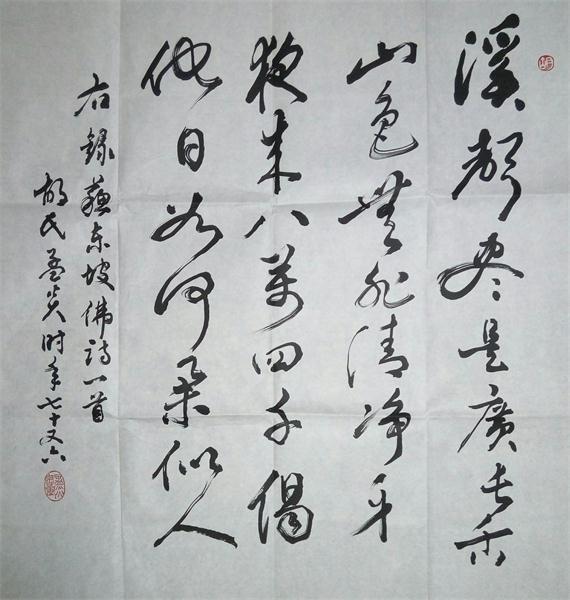 溪聲尽是廣長舌
山色無非清净身
夜来八萬四千偈
他日如何举似人
右録蘇东坡佛詩一首
胡氏孟炎时年七十又六